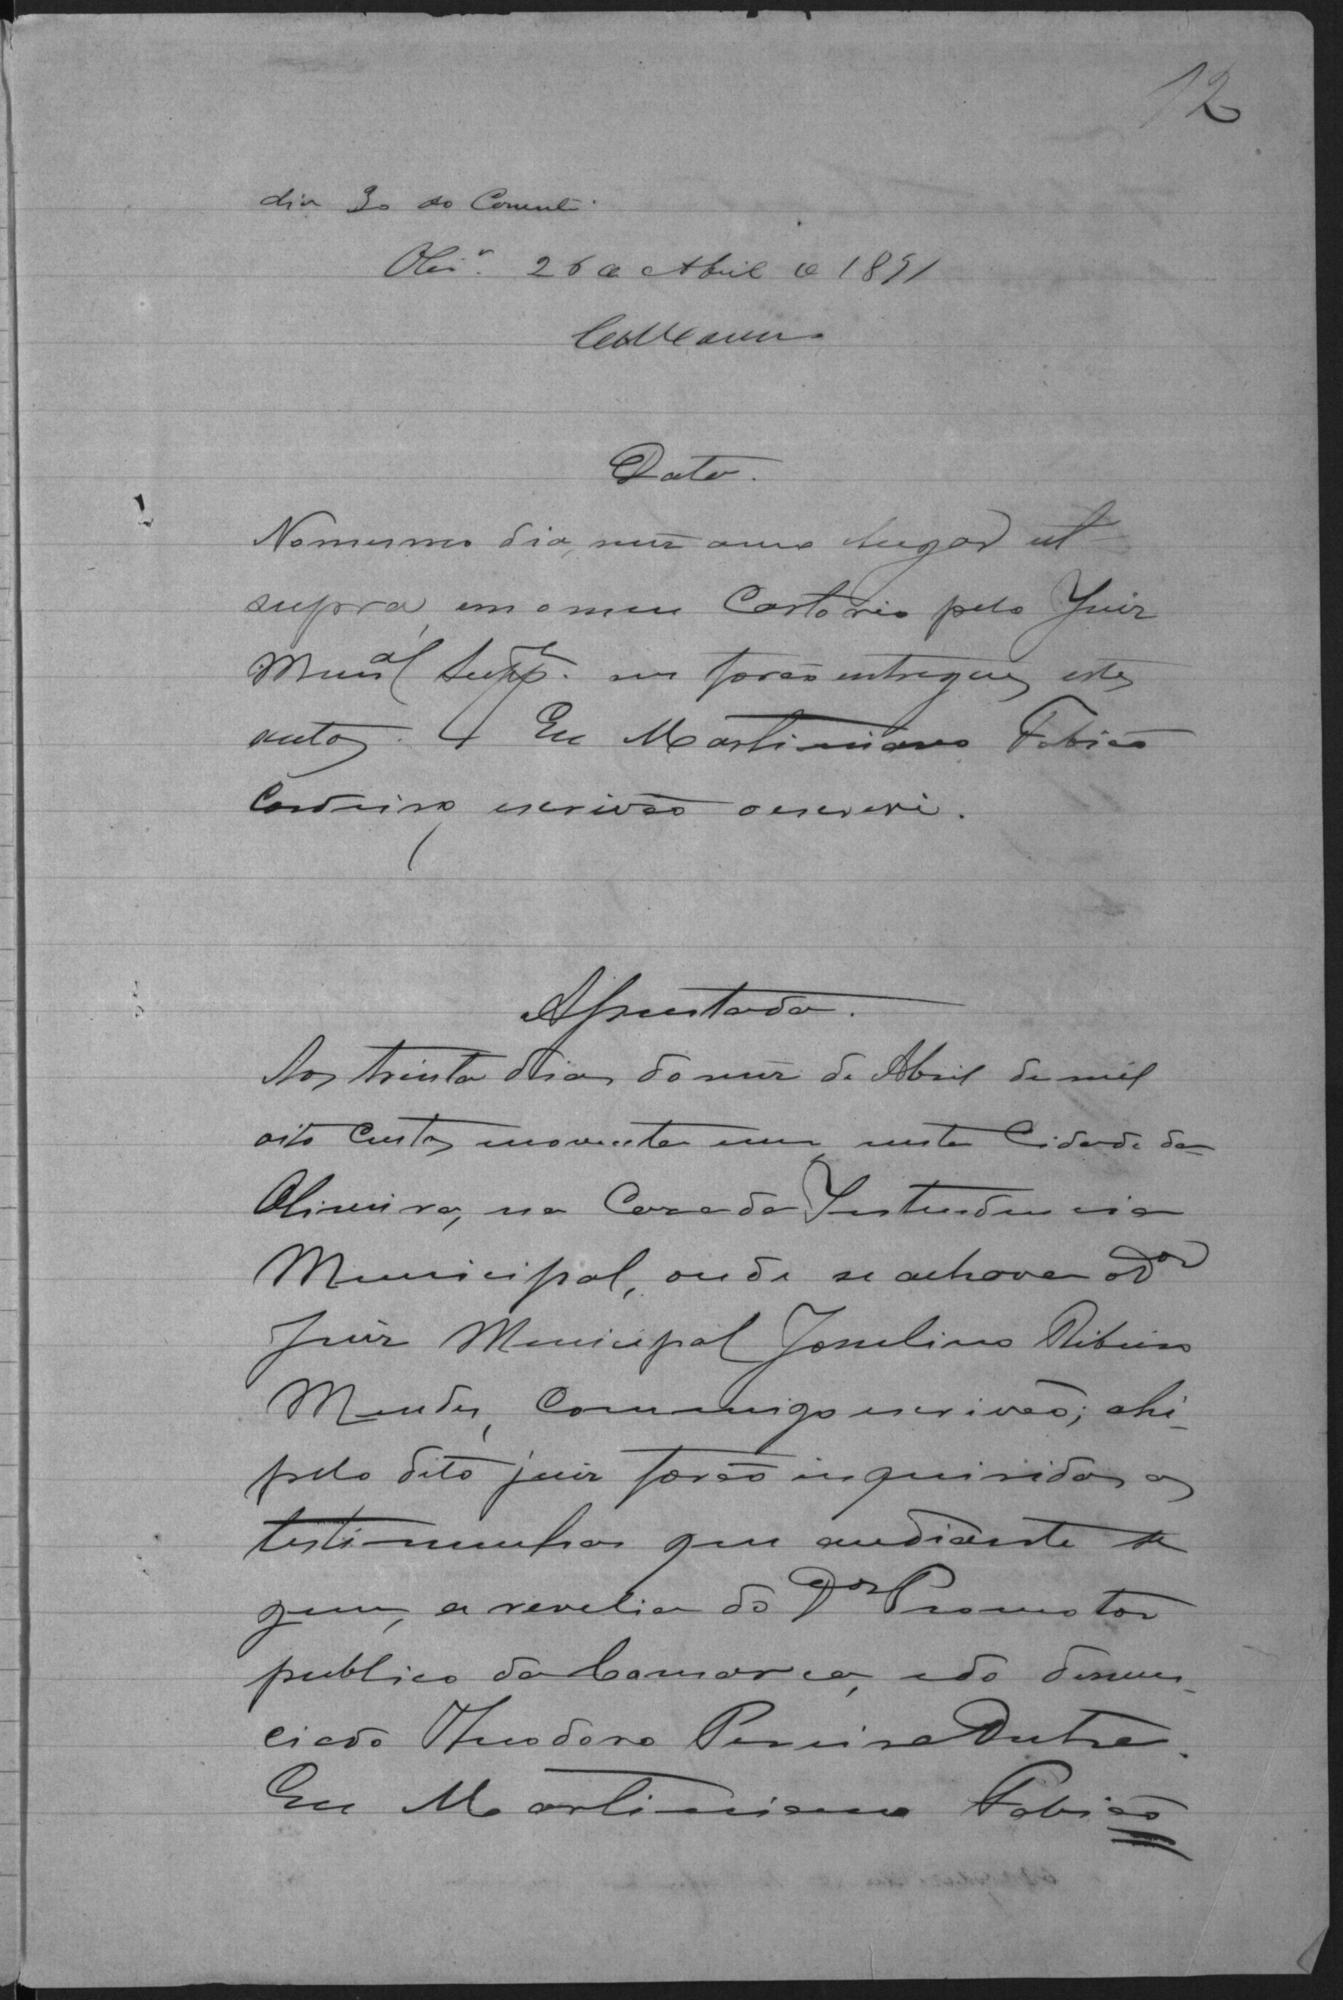 12
dia 30 do Corrente.
Olivrª. 26 de Abril de 1891
Data.
No mesmo dia, mez anno e lugar ut
supra, em o meu Cartorio pelo Juiz
Munal Suppe. me forão entregues estes
autos. Eu Martiniano Fabião
Cordeiro, escrivão o escrevi.
Assentada.
Aos trinta dias do mez de Abril de mil
oito Centos noventa e um, nesta Cidade da
Oliveira, na Casa da Intendencia
Municipal, onde se achava o Dor
Juiz Municipal Joselino Ribeiro
Mendes, Commigo escrivão; ahi
pelo dito juiz forão inquiridas as
testimunhas que audiante se
guem, a revelia do Dor Promotor
publico da Comarca, e do denun-
ciado Theodoro Pereira Dutra.
Eu Martiniano Fabião